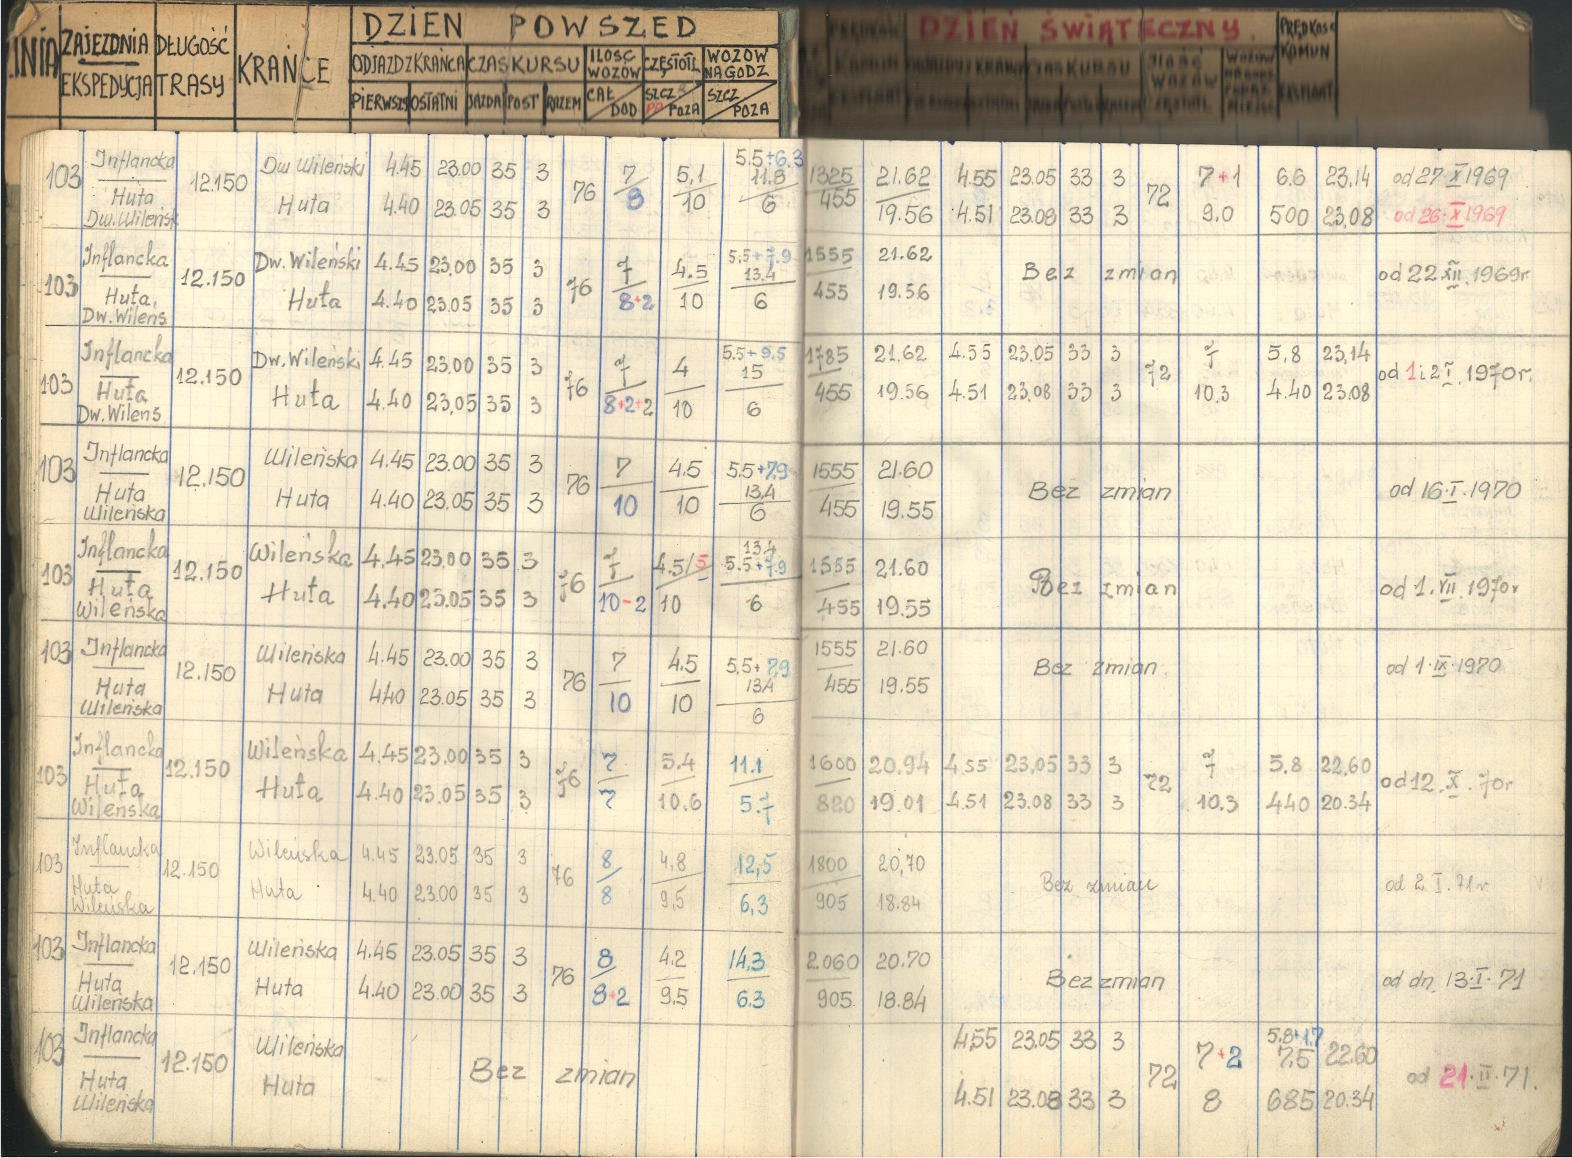 LINIA ZAJEZDNIA EKSPEDYCJA DŁUGOŚĆ TRASY KRAŃCE DZIEŃ POWSZED DZIEŃ ŚWIĄTECZNY.
ODJAZD Z KRAŃCA CZAS KURSU ILOŚC WOZÓW CZĘSTOTL WOZÓW NA GODZ
PIERWSZY OSTATNI JAZDA POST RAZEM CAŁ DOD SZCZ POZA SZCZ POZA
103 Inflancka 12.150 Dw Wileński 4.45 23.00 35 3 76 7 5,1 5.5+6.3 11.8 1325 21.62 4.55 23.05 33 3 72 7+1 6.6 23,14 od 27 X 1969
Huta Dw. Wileńsk Huta 4.40 23.05 35 3 8 10 6 455 19.56 4.51 23.08 33 3 9,0 500 23,08 od 26 X 1969
103 Inflancka 12.150 Dw. Wileński 4.45 23,00 35 3 76 7 4.5 5,5+7.9 13,4 1555 21.62 Bez zmian od 22 XII 1969r.
Huta, Dw. Wileńs Huta 4.40 23.05 35 3 8+2 10 6 455 19.56
103 Inflancka 12.150 Dw. Wileński 4.45 23,00 35 3 76 7 4 5.5+9,5 15 1785 21,62 4.55 23.05 33 3 72 7 5,8 23,14 od 1 i 2 I 1970r.
Huta, Dw. Wileńs. Huta 4.40 23,05 35 3 8+2+2 10 6 455 19.56 4.51 23,08 33 3 10,3 4.40 23.08
103 Inflancka 12.150 Wileńska 4.45 23.00 35 3 76 7 4.5 5.5+7.9 13,4 1555 21.60 Bez zmian od 16.I.1970
Huta Wileńska Huta 4.40 23.05 35 3 10 10 6 455 19.55
103 Inflancka 12.150 Wileńska 4.45 23,00 35 3 76 7 4.5/5 13,4 5.5+7.9 1555 21.60 Bez zmian od 1.VII.1970r
Huta Wileńska Huta 4.40 23.05 35 3 10-2 10 6 455 19.55
103 Inflancka 12.150 Wileńska 4.45 23.00 35 3 76 7 4.5 5,5+7,9 13,4 1555 21.60 Bez zmian. od 1.IX.1970
Huta Wileńska Huta 4.40 23.05 35 3 10 10 6 455 19.55
103 Inflancka 12.150 Wileńska 4.45 23.00 35 3 76 7 5.4 11.1 1600 20.94 4.55 23,05 33 3 72 7 5.8 22,60 od 12.X.70r
Huta Wileńska Huta 4.40 23.05 35 3 7 10.6 5.7 820 19.01 4.51 23.08 33 3 10,3 440 20.34
103 Inflancka 12.150 Wileńska 4.45 23.05 35 3 76 8 4,8 12,5 1800 20,70 Bez zmian od 2.I.71r
Huta Wileńska Huta 4.40 23.00 35 3 8 9,5 6,3 905 18.84
103 Inflancka 12.150 Wileńska 4.45 23.05 35 3 76 8 4.2 14,3 2.060 20.70 Bez zmian od dn. 13.I.71
Huta Wileńska Huta 4.40 23.00 35 3 8+2 9.5 6.3 905. 18.84
103 Inflancka 12.150 Wileńska Bez zmian 4.55 23.05 33 3 72 7+2 5.8+1.7 7,5 22.60 od 21.II.71.
Huta Wileńska Huta 4.51 23.08 33 3 8 685 20.34